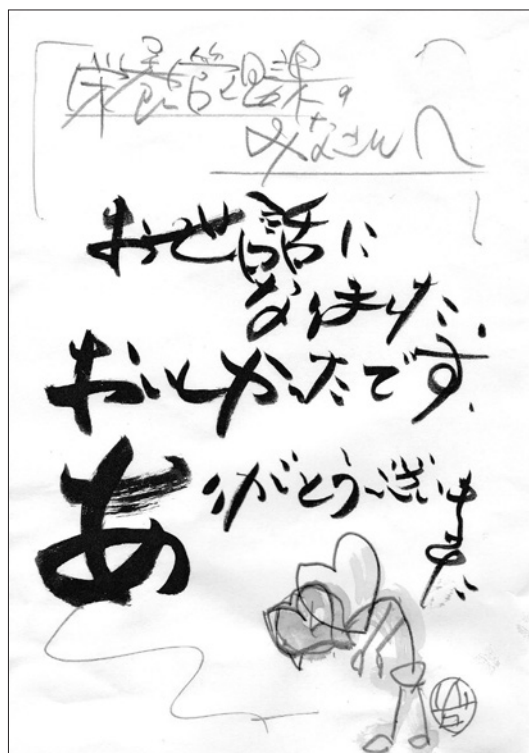 栄養管理課の
みなさんへ
お世話に
なりました。
おいしかったです。
ありがとうございました